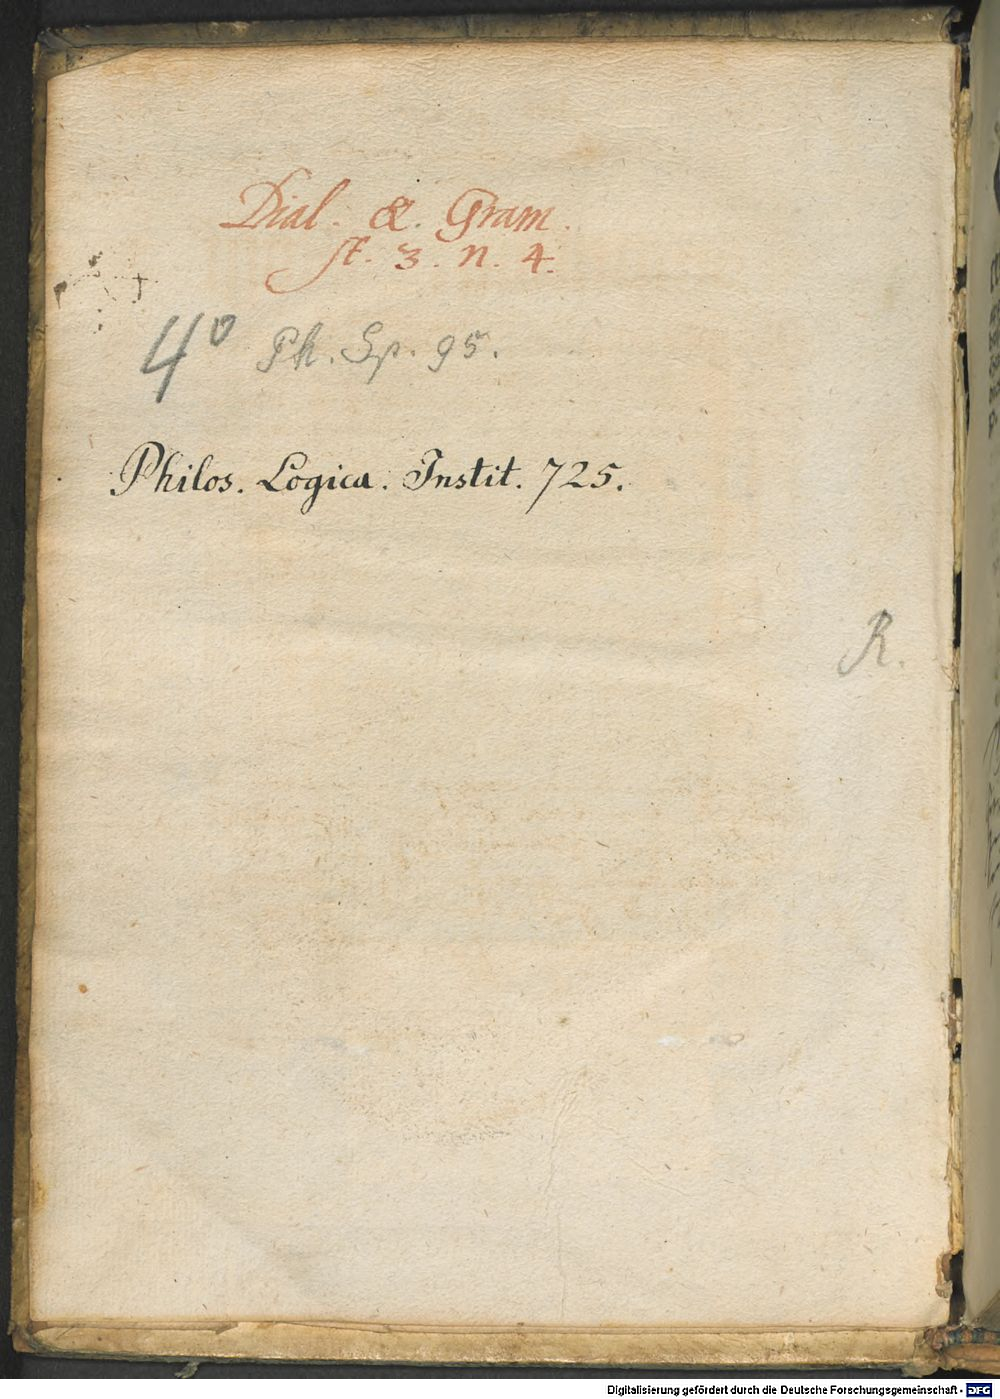 Dial. & Gram.
St. 3. n. 4.
4º Ph. Sp. 95.
Philos. Logica. Instit. 725.
R.
Digitalisierung gefördert durch die Deutsche Forschungsgemeinschaft - DFG